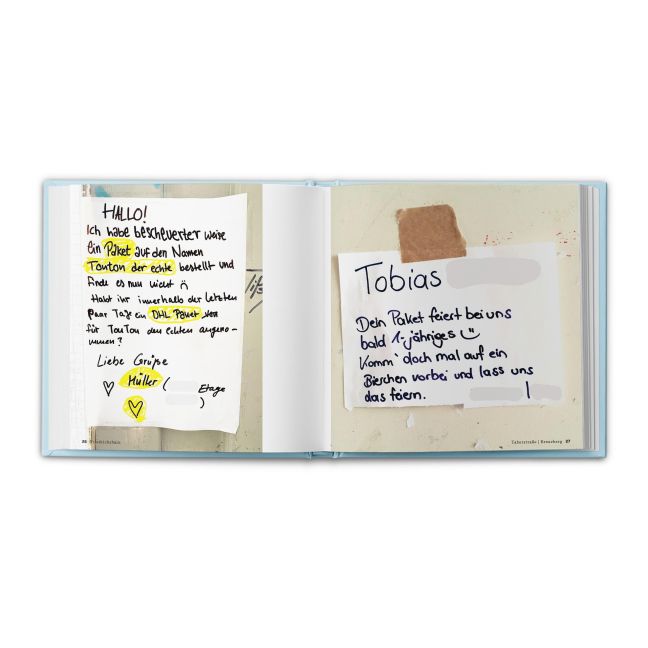 HALLO!
Ich habe bescheuerter weise
ein Paket auf den Namen
Touton der echte bestellt und
finde es nun nicht
Habt ihr innerhalb der letzten
paar Tage ein DHL Paket
für TouTou den echten angeno-
mmen?
Liebe Grüße
Müller ( Etage
)
26 Friedrichshain
Tobias
Dein Paket feiert bei uns
bald 1-jähriges
Komm' doch mal auf ein
Bierchen vorbei und lass uns
das feiern.
Taborstraße | Kreuzberg 27